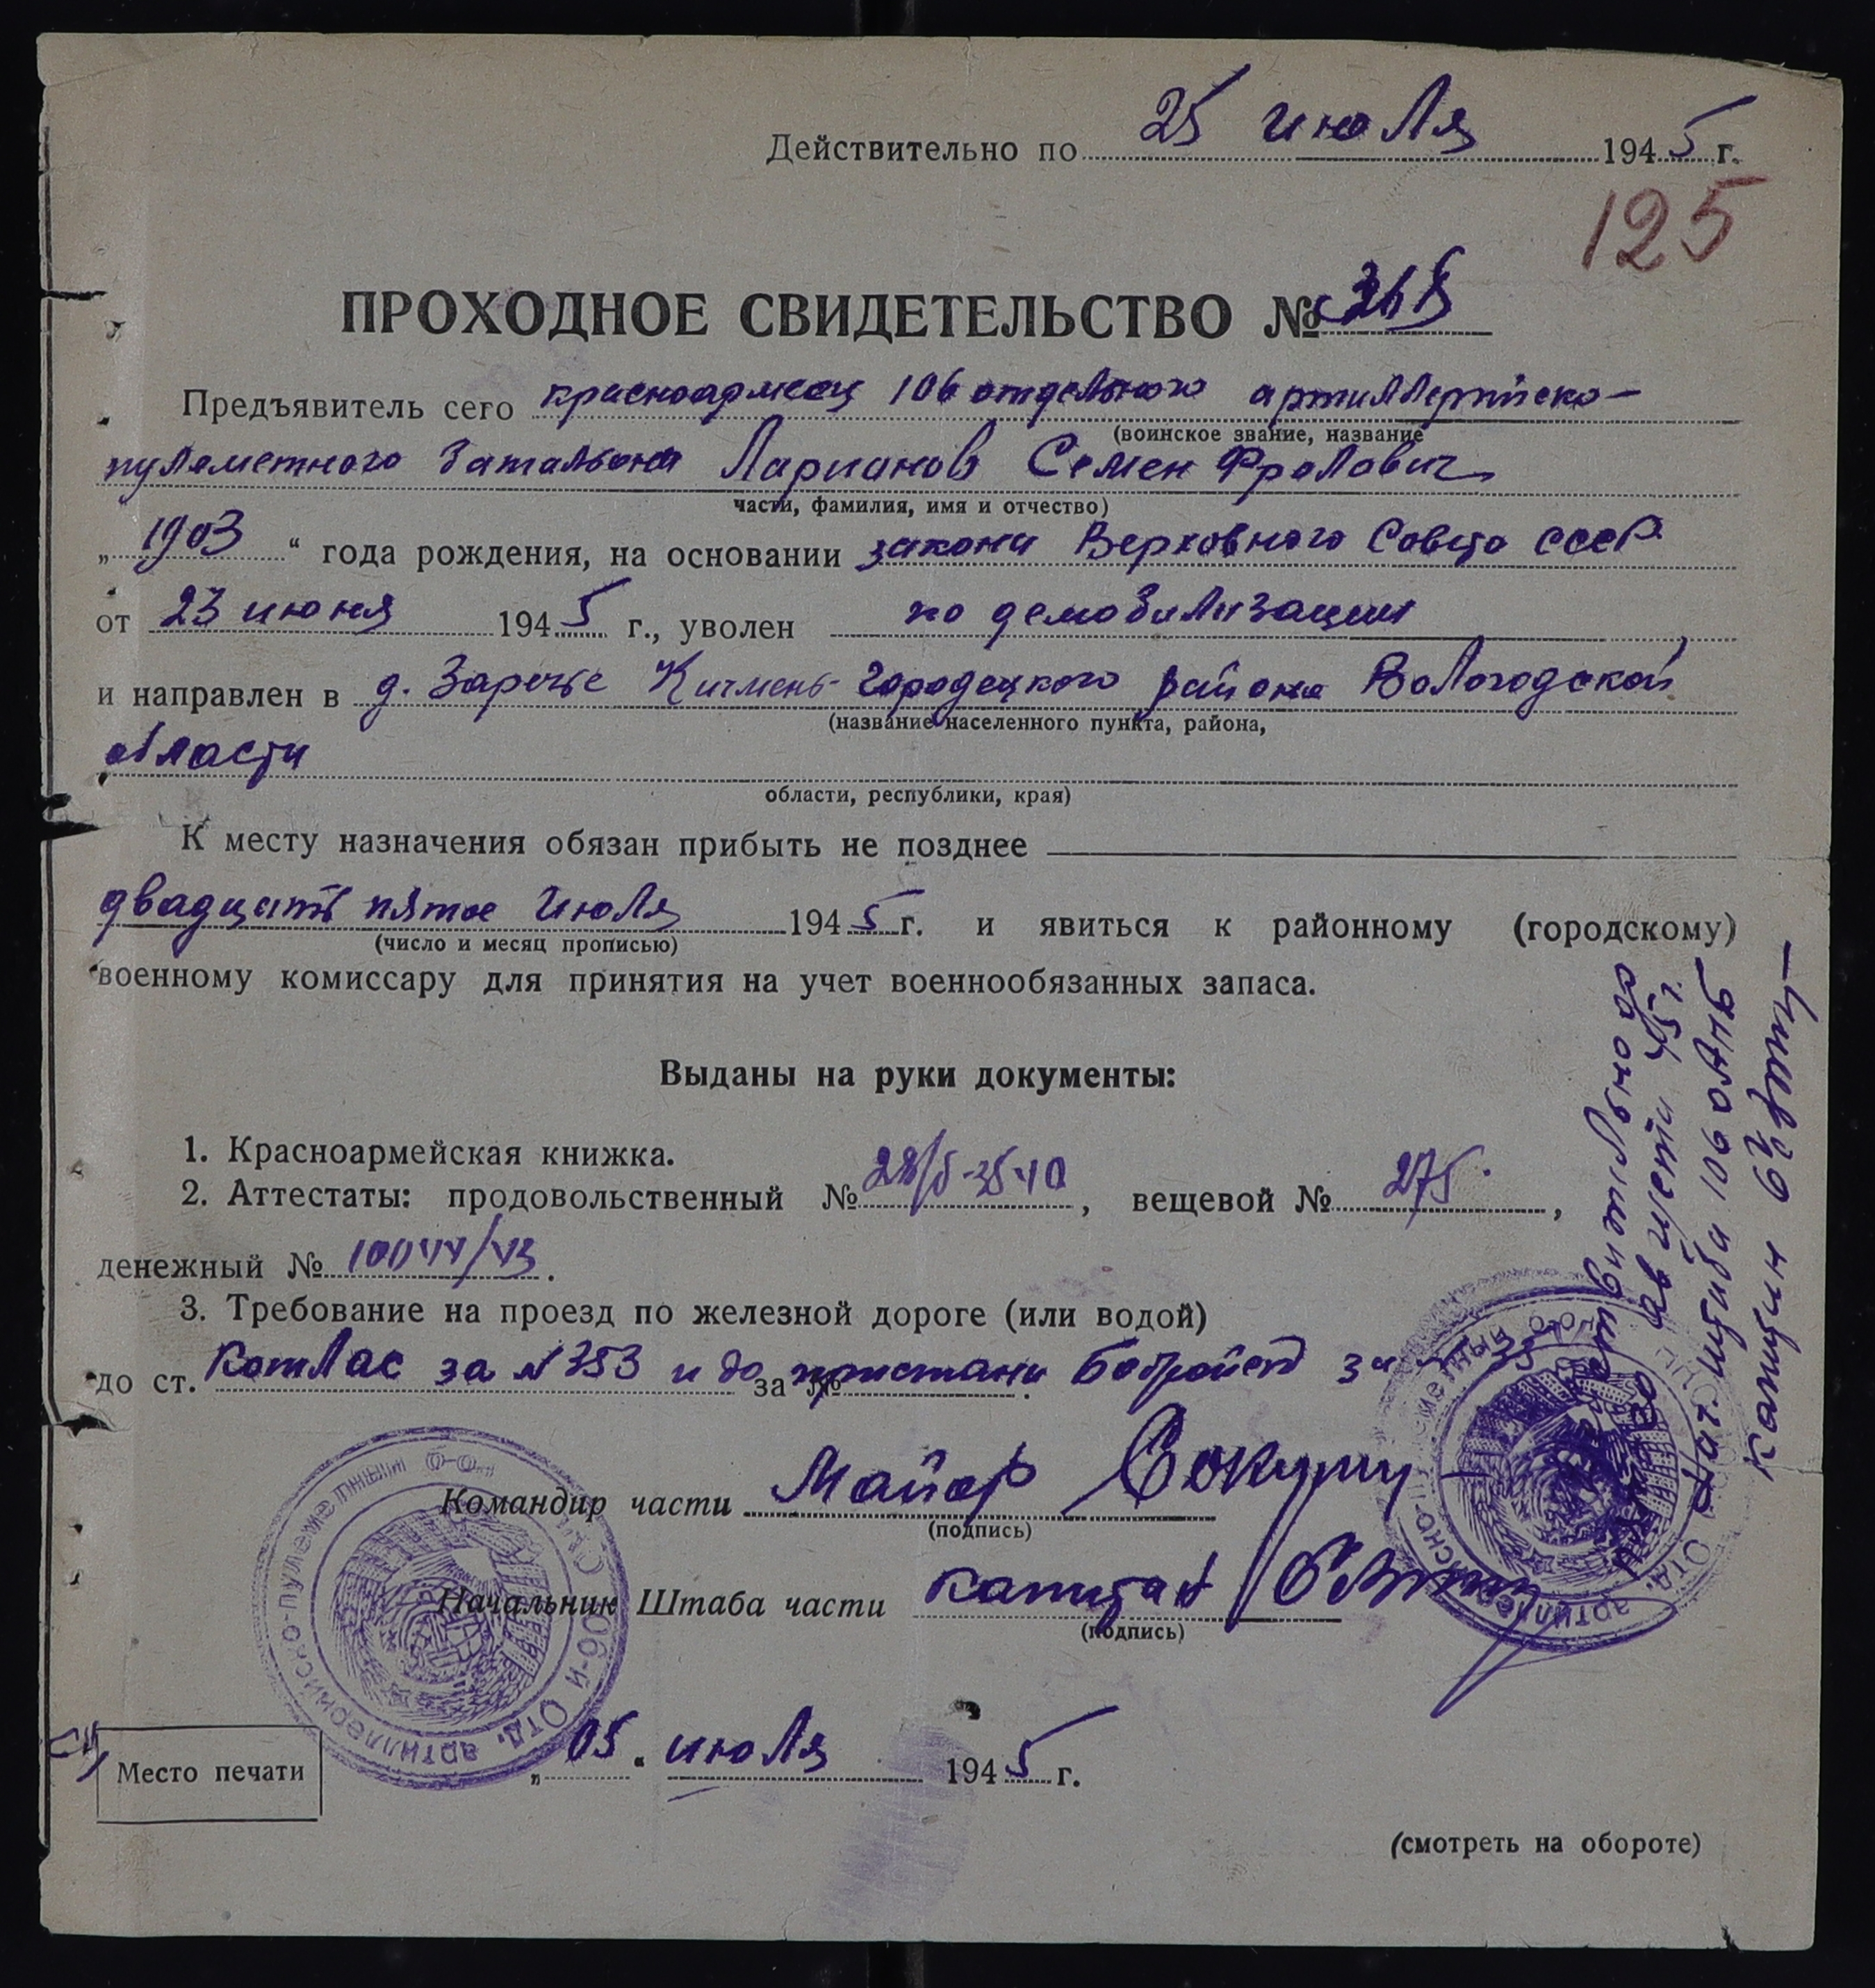 Действительно по 25 июля 1945 г.
125
ПРОХОДНОЕ СВИДЕТЕЛЬСТВО №
Предъявитель сего красноармеец 106 отдельного артиллерийско-
(воинское звание, название
пулеметного батальона Ларионов Семен Фролович
части, фамилия, имя и отчество)
„1903“ года рождения, на основании закона Верховного Совета СССР
от 23 июня 1945 г., уволен по демобилизации
и направлен в д. Заречье Кичмень-Городецкого района Вологодской
(название населенного пункта, района,
области
области, республики, края)
К месту назначения обязан прибыть не позднее
двадцать пятое июля 1945 г. и явиться к районному (городскому)
(число и месяц прописью)
военному комиссару для принятия на учет военнообязанных запаса.
Выданы на руки документы:
1. Красноармейская книжка.
2. Аттестаты: продовольственный №, вещевой № 275,
денежный №.
3. Требование на проезд по железной дороге (или водой)
до ст. Котлас за № 353 и до за № пристани за
Командир части Майор
(подпись)
Начальник Штаба части капитан
(подпись)
Место печати
„05“ июля 1945 г.
(смотреть на обороте)
Действительно до
августа 45 г.
Нач. штаба 106 ОАПБ
капитан
106-й Отд. артиллерийско-пулеметный
Отд. артиллерийско-пулеметный